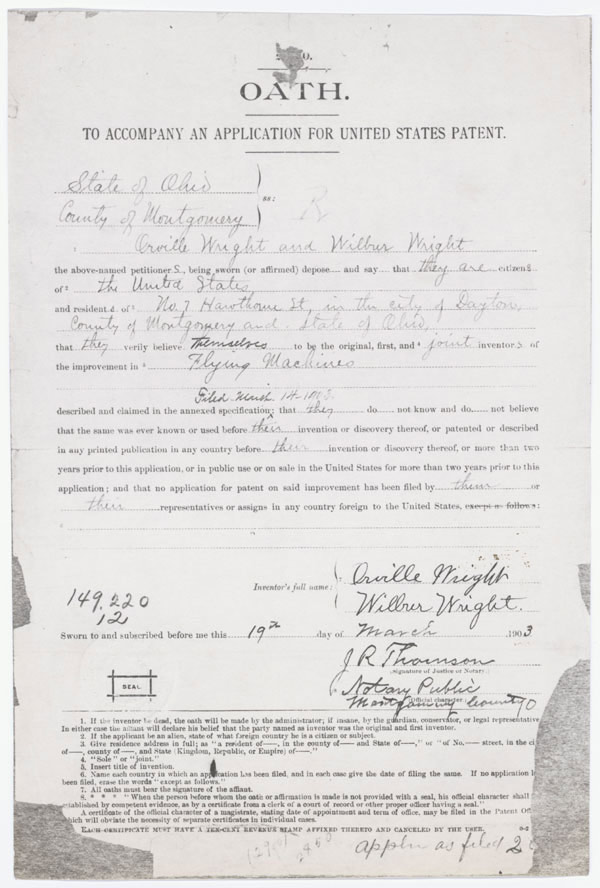 OATH.
TO ACCOMPANY AN APPLICATION FOR UNITED STATES PATENT.
State of Ohio
ss:
County of Montgomery
R
Orville Wright and Wilbur Wright
the above-named petitioners, being sworn (or affirmed) depose and say that they are citizens
of the United States
and resident of No. 7 Hawthorne St, in the city of Dayton,
County of Montgomery and State of Ohio,
that they verily believe themselves to be the original, first, and joint inventors of
the improvement in Flying Machines
Filed March
described and claimed in the annexed specification; that they do not know and do not believe
that the same was ever known or used before their invention or discovery thereof, or patented or described
in any printed publication in any country before their invention or discovery thereof, or more than two
years prior to this application, or in public use or on sale in the United States for more than two years prior to this
application; and that no application for patent on said improvement has been filed by them or
their representatives or assigns in any country foreign to the United States, except as follows:
Inventor's full name:
Orville Wright
Wilbur Wright.
149,220
12
Sworn to and subscribed before me this 19th day of March 1903
J R Thomson
Signature of Justice or Notary.
SEAL
Notary Public
Montgomery County O
(Official character)
1. If the inventor be dead, the oath will be made by the administrator; if insane, by the guardian, conservator, or legal representative
In either case the affiant will declare his belief that the party named as inventor was the original and first inventor.
2. If the applicant be an alien, state of what foreign country he is a citizen or subject.
3. Give residence address in full; as "a resident of——, in the county of——and State of——," or "of No.——street, in the ci
of——, county of——, and State [Kingdom, Republic, or Empire] of——."
4. "Sole" or "joint."
5. Insert title of invention.
6. Name each country in which an application has been filed, and in each case give the date of filing the same. If no application
been filed, erase the words "except as follows."
7. All oaths must bear the signature of the affiant.
8. * * * "When the person before whom the oath or affirmation is made is not provided with a seal, his official character shall
established by competent evidence, as by a certificate from a clerk of a court of record or other proper officer having a seal."
A certificate of the official character of a magistrate, stating date of appointment and term of office, may be filed in the Patent Off
which will obviate the necessity of separate certificates in individual cases.
EACH CERTIFICATE MUST HAVE A TEN-CENT REVENUE STAMP AFFIXED THERETO AND CANCELED BY THE USER.
applen as filed 2